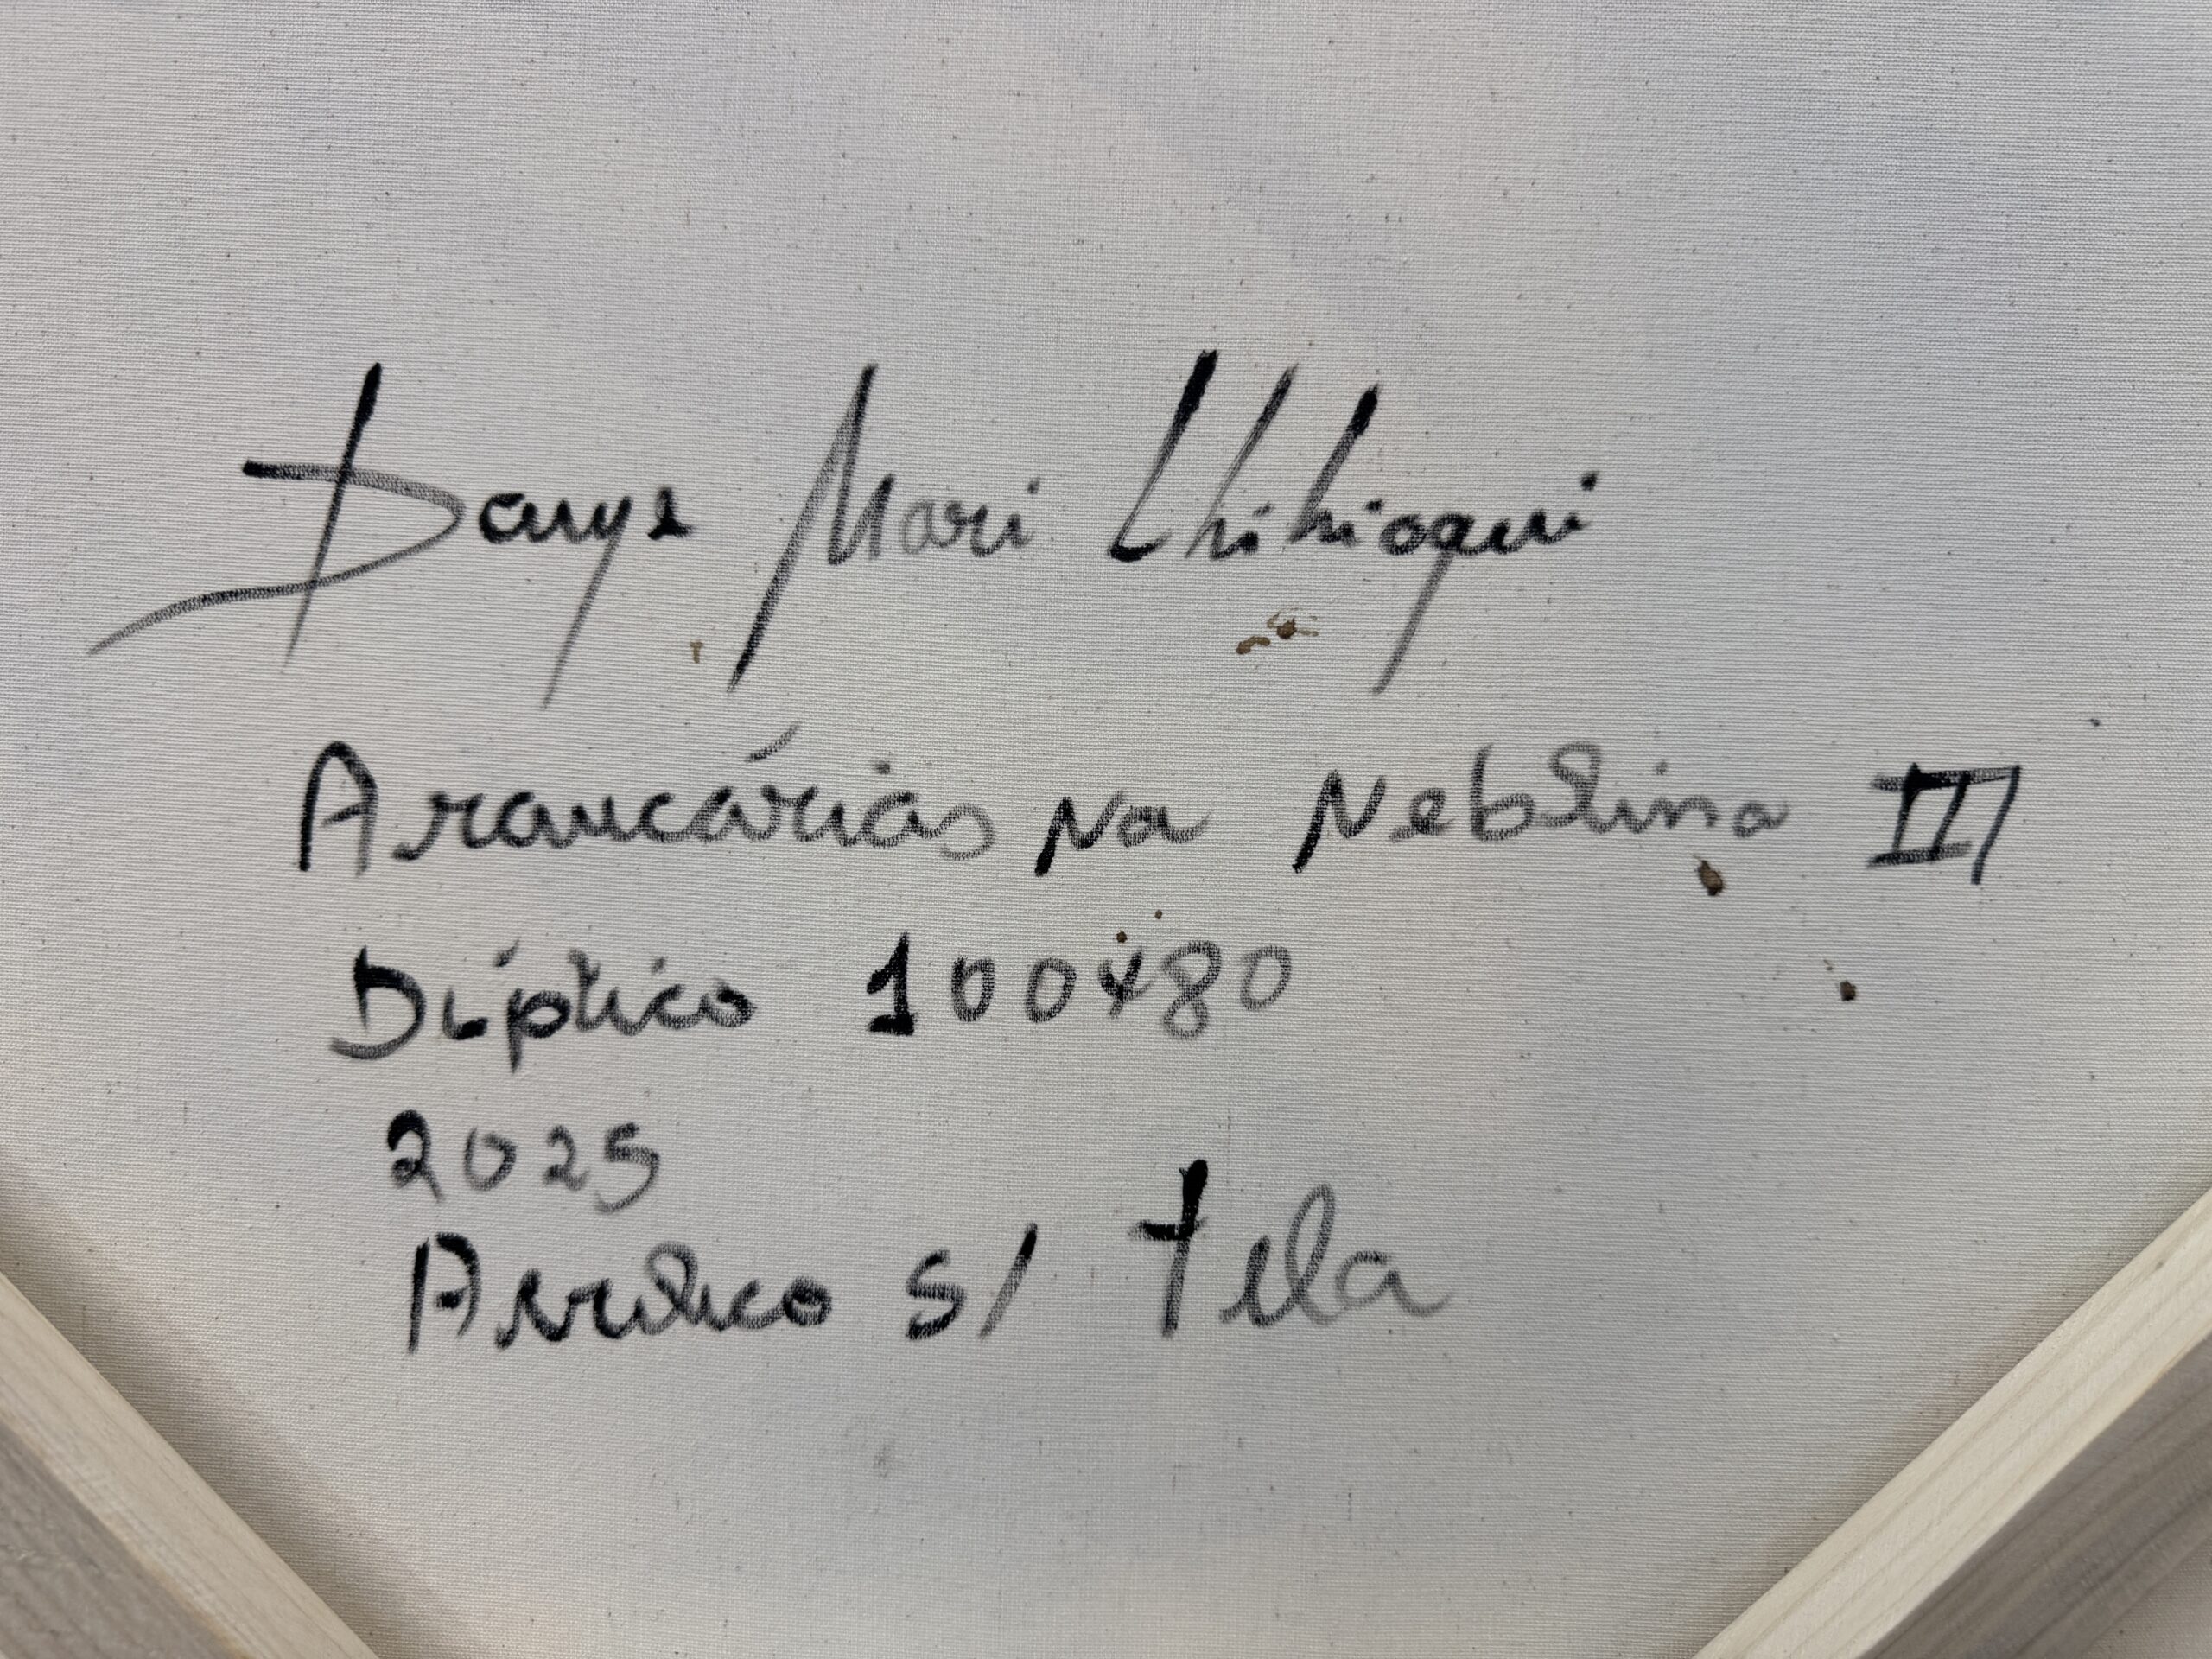 Mari
Araucárias Na Neblina III
Díptico 100x80
2025
Acrílico s/ Tela